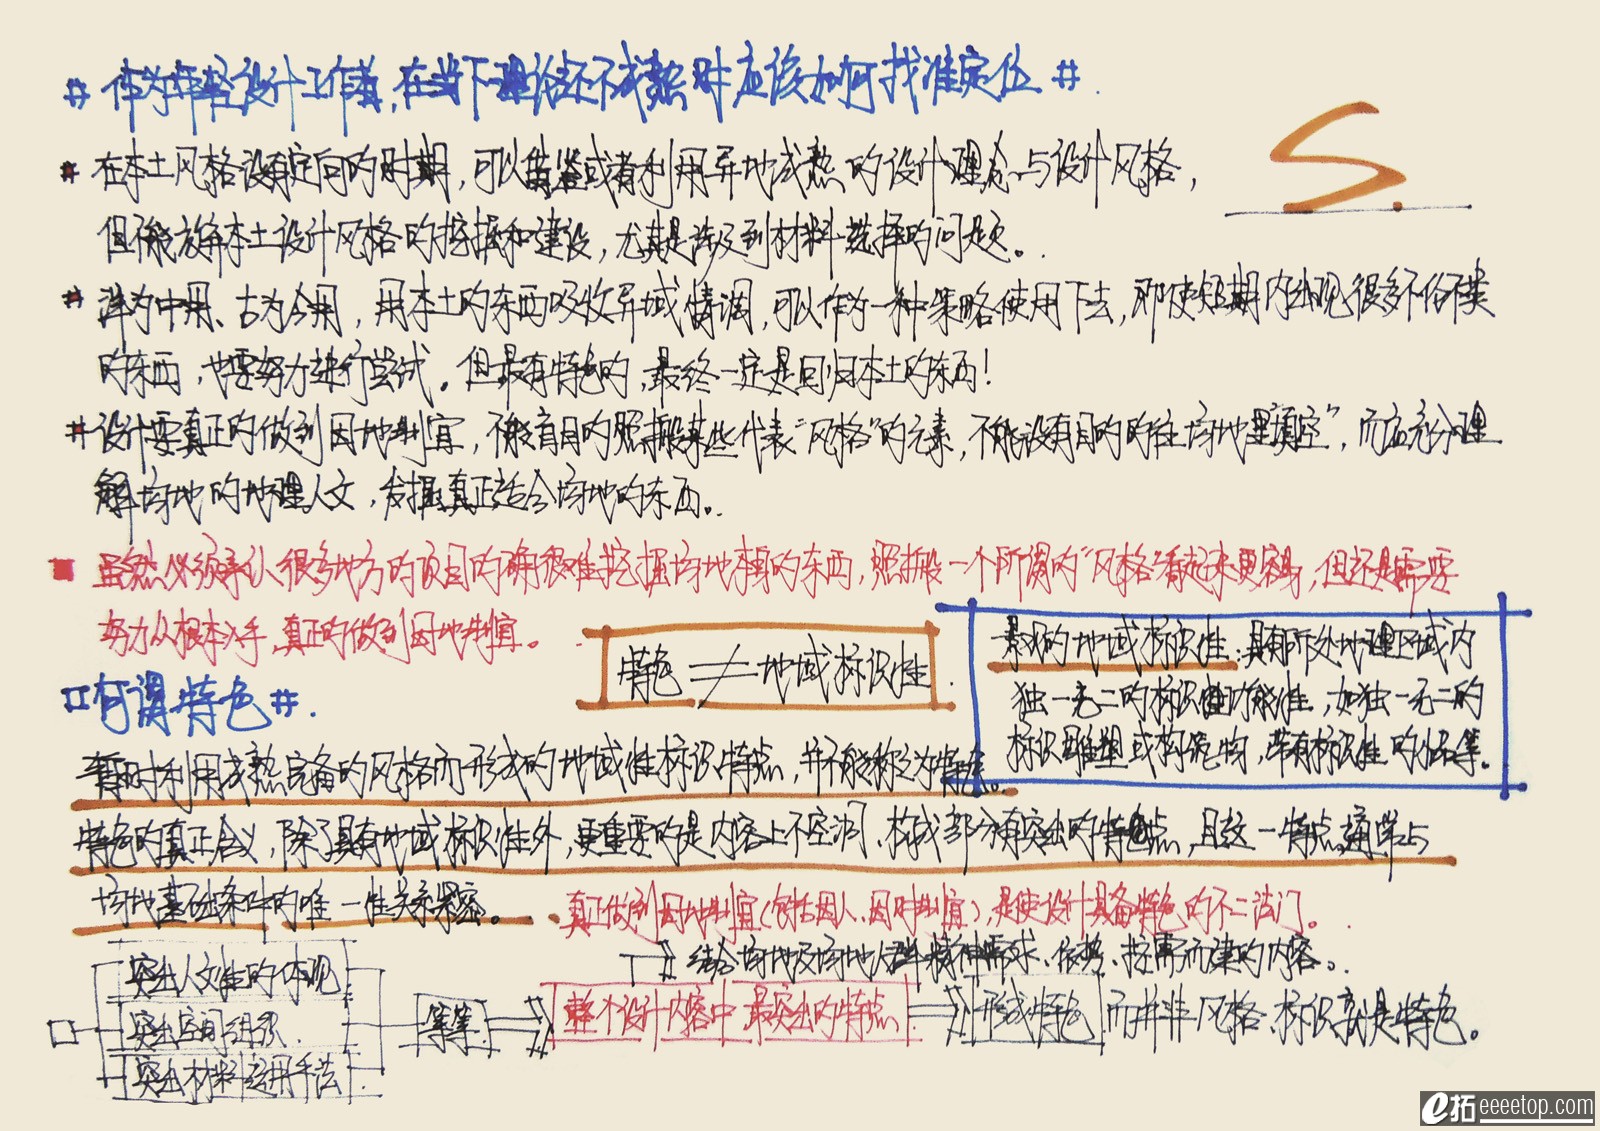 # 作为年轻设计工作者,在当下理论还不成熟时应该如何找准定位 #.
S.
# 在本土风格没有定向的时期,可以借鉴或者利用异地成熟的设计理念与设计风格,
但不能放弃本土设计风格的挖掘和建设,尤其是涉及到材料选择的问题。
# 洋为中用、古为今用,用本土的东西吸收异域情调,可以作为一种策略使用下去,即使短期内出现很多不伦不类
的东西,也要努力进行尝试。但最有特色的,最终一定是回归本土的东西!
# 设计要真正的做到因地制宜,不能盲目的照搬某些代表“风格”的元素,不能没有目的的往场地里“填空”,而应充分理
解场地的地理人文,发掘真正适合场地的东西。
虽然必须承认很多地方的项目的确很难挖掘场地本身的东西,照搬一个所谓的“风格”看起来更容易,但还是需要
努力从根本入手,真正的做到因地制宜。
特色 ≠ 地域标识性.
景观的地域标识性:具有所处地理区域内
独一无二的标识性功能性,如独一无二的
标识雕塑或构筑物,带有标识性的小品等.
何谓特色 #.
暂时利用成熟完备的风格而形成的地域性标识特点,并不能称之为特色。
特色的真正含义,除了具有地域标识性外,更重要的是内容上不空洞,构成部分有突出的特色点,且这一特点通常与
场地基础条件的唯一性关系紧密。
真正做到因地制宜(包括因人、因时制宜),是使设计具备特色的不二法门。
结合场地及场地人群精神需求、依势、按需而建的内容。
突出人文性的体现
突出空间组织
突出材料运用手法
等等
整个设计内容中最突出的特点
形成特色
而并非风格、标识就是特色。
e拓 eeeetop.com